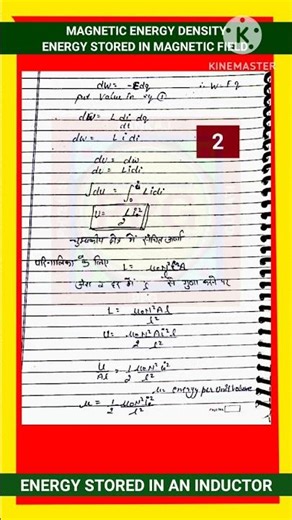 MAGNETIC ENERGY DENSITY
ENERGY STORED IN MAGNETIC FIELD
KINEMASTER
dw = -Edq ∵ W = E q
put value in eq ①
dw = L di/dt dq
dw = L i di
2
du = dw
du = Lidi
∫du = ∫₀ Lidi
U = 1/2 Li₀²
चुम्बकीय क्षेत्र में संचित ऊर्जा
परिनालिका के लिए L = μ₀N²A
अंश व हर में l से गुणा करने पर
L = μ₀N²Al/l²
U = μ₀N²Ai²l/2 l²
U/Al = 1/2 μ₀N²i₀²/l²
u = energy per unit volume
u = 1/2 μ₀N²i₀²/l²
ENERGY STORED IN AN INDUCTOR